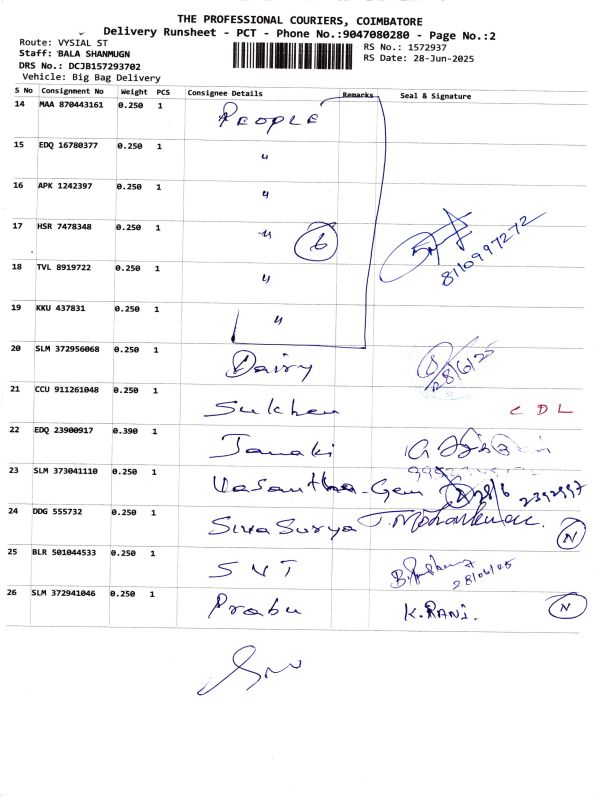 THE PROFESSIONAL COURIERS, COIMBATORE
Delivery Runsheet - PCT - Phone No.:9047080280 - Page No.:2
Route: VYSIAL ST
Staff: BALA SHANMUGN
DRS No.: DCJB157293702
Vehicle: Big Bag Delivery
RS No.: 1572937
RS Date: 28-Jun-2025
S No Consignment No Weight PCS Consignee Details Remarks Seal & Signature
14 MAA 870443161 0.250 1 PEOPLE
15 EDQ 16780377 0.250 1 "
16 APK 1242397 0.250 1 "
17 HSR 7478348 0.250 1 " 6 8110997272
18 TVL 8919722 0.250 1 "
19 KKU 437831 0.250 1 "
20 SLM 372956068 0.250 1 Dairy 28/6/25
21 CCU 911261048 0.250 1 Sukhen C D L
22 EDQ 23900917 0.390 1 Janaki
23 SLM 373041110 0.250 1 Vasantha-Gem 28/6 2392997
24 DDG 555732 0.250 1 Siva Surya T. Mohankumar. N
25 BLR 501044533 0.250 1 S N T 28/06/25
26 SLM 372941046 0.250 1 Prabu K.RANI. N